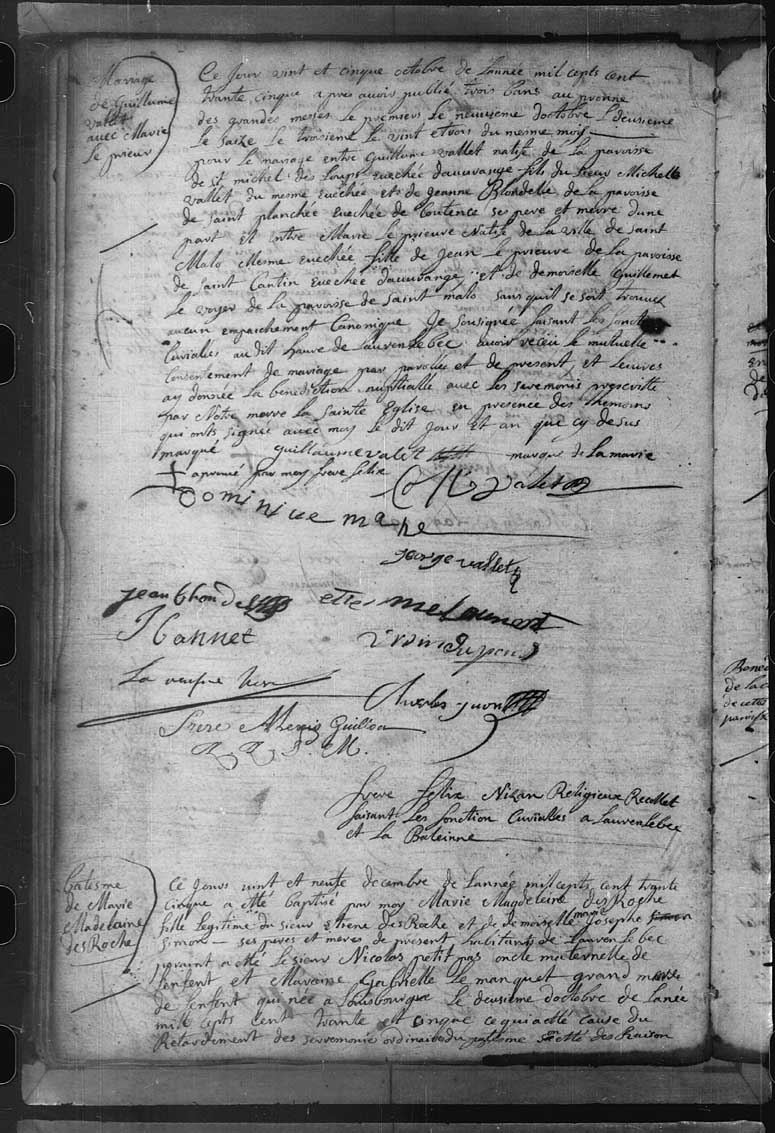 Mariage
de Guillume
vallet
avec Marie
le prieur
Ce Jour vint et cinque octobre de Lannée mil cepts cent
trante cinque apres avoir publié trois bans au pronne
des grandes messes le premiers le neuvieme doctobre Le deusieme
le saize le troisieme le vint et trois du mesme moy
pour le mariage entre Guillume vallet natife de la paroisse
de st michel des Loups Evechée dauvrange fils du sieur Michelle
vallet du mesme evechée et de Jeanne Blondelle de la paroisse
de Saint planchée Evechée de Coutence se pere et merre dune
part et entre Marie Le prieure Natife de la ville de Saint
Malo Mesme evechée fille de Jean Le prieure de la paroisse
de Saint Cantin Evechée dauvrange et de demoiselle Guillemet
Le voyer de la paroisse de Saint malo sans quil se soit trouvez
aucun empaichement Canonique Je Sousignée faisant Les fonct
Curialles au dit havre de Laurenlebec avoir receu le mutuelle
Consentement de mariage par parolle et de present et Leures
ay donnée La benediction nuptialle avec Les seremonis prescritte
par Notre merre La Sainte Eglise en presence des Themoins
qui onts signée avec moy le dit Jour et an que cy desus
marqué guillaume valet marque de La marie
aprouvé par moy frere felix
Dominicue mahe
george vallet
Jean
Hannet
La veufve
Charles
frere Alexis Guillou
R. R. M.
frere felix Nizan Religieux Recollet
faisant Les fonction Curialles a Laurenlebec
et La Baleinne
batesme
de Marie
Madelaine
des Roche
Ce Jours vint et neufe decembre de Lannée mil cepts cent trante
cinque a etté baptisé par moy Marie Magdeleine des Roche
fille legetime du sieur Etiene des Roche et de demoiselle marie Josephe
Simon ses peres et meres de present habitants de Laurenlebec
paraint a etté le sieur Nicolas petit pas oncle maternelle de
lenfent et Maraine Gabrielle Le manquet grand merre
de lenfent qui née a Louisbourque Le deusieme doctobre de Lanée
mill cepts cent trante et cinque ce qui a etté cause du
Retardement des serremonie ordinaire du batesme etté des Raison